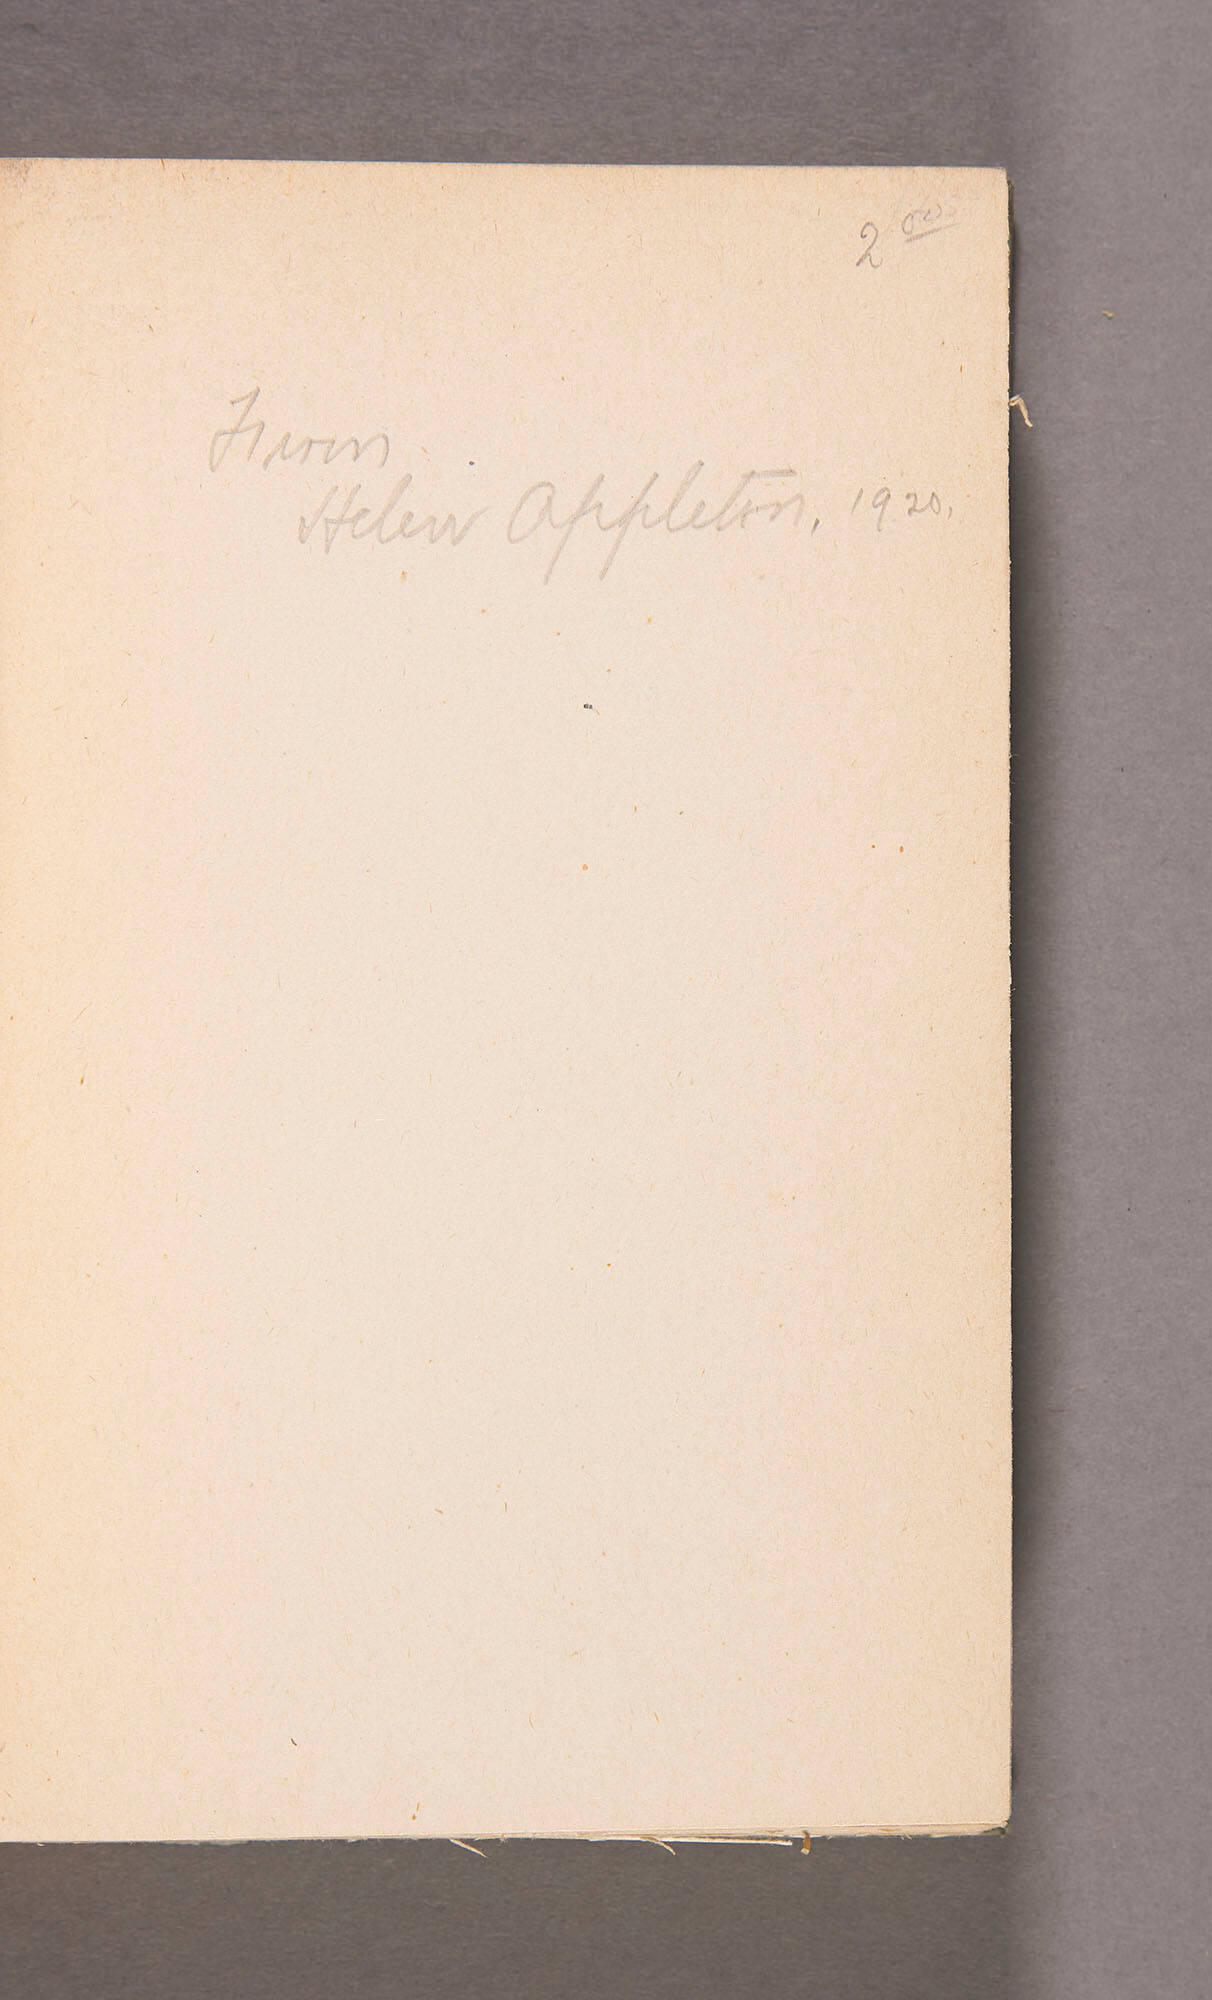 2 00
From
Helen Appleton, 1920.